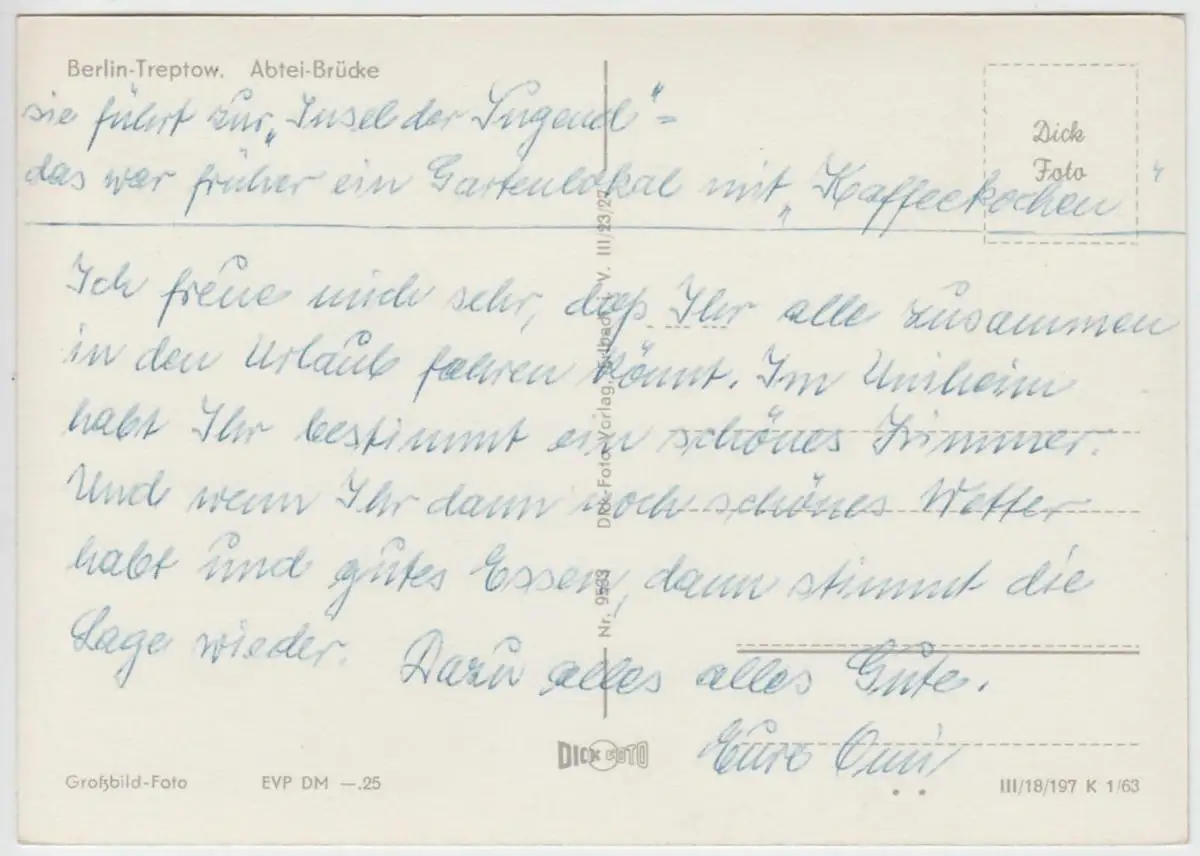 Berlin-Treptow. Abtei-Brücke
sie führt zur „Insel der Jugend" =
das war früher ein Gartenlokal mit „Kaffeekochen"
Dick
Foto
Ich freue mich sehr, daß Ihr alle zusammen
in den Urlaub fahren könnt. Im Uniheim
habt Ihr bestimmt ein schönes Zimmer.
Und wenn Ihr dann noch schönes Wetter
habt und gutes Essen, dann stimmt die
Lage wieder. Dazu alles alles Gute.
Eure Omi
Nr. 9533 Dick-Foto-Verlag, V. III/23/27
DICK FOTO
Großbild-Foto EVP DM —.25
III/18/197 K 1/63